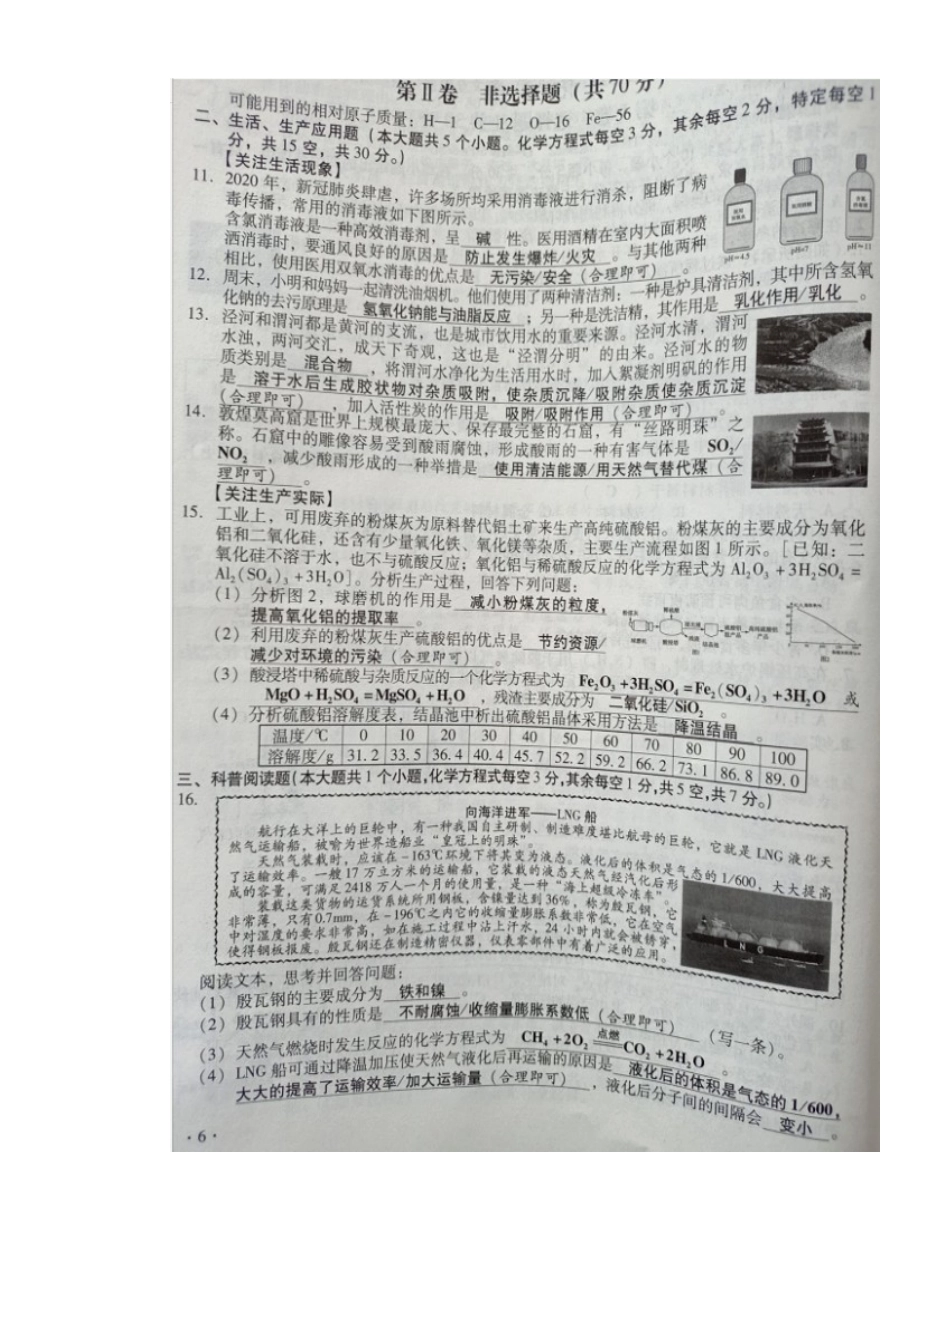 第Ⅱ卷 非选择题（共70分）
可能用到的相对原子质量：H—1 C—12 O—16 Fe—56
二、生活、生产应用题（本大题共5个小题。化学方程式每空3分，其余每空2分，特定每空1
分，共15空，共30分。）
【关注生活现象】
11. 2020年，新冠肺炎肆虐，许多场所均采用消毒液进行消杀，阻断了病
毒传播，常用的消毒液如下图所示。
含氯消毒液是一种高效消毒剂，呈 碱 性。医用酒精在室内大面积喷
洒消毒时，要通风良好的原因是 防止发生爆炸/火灾 。与其他两种
相比，使用医用双氧水消毒的优点是 无污染/安全（合理即可） 。
pH≈4.5 pH=7 pH≈11
12. 周末，小明和妈妈一起清洗油烟机。他们使用了两种清洁剂：一种是炉具清洁剂，其中所含氢氧
化钠的去污原理是 氢氧化钠能与油脂反应 ；另一种是洗洁精，其作用是 乳化作用/乳化 。
13. 泾河和渭河都是黄河的支流，也是城市饮用水的重要来源。泾河水清，渭河
水浊，两河交汇，成天下奇观，这也是“泾渭分明”的由来。泾河水的物
质类别是 混合物 ，将渭河水净化为生活用水时，加入絮凝剂明矾的作用
是 溶于水后生成胶状物对杂质吸附，使杂质沉降/吸附杂质使杂质沉淀
（合理即可） ，加入活性炭的作用是 吸附/吸附作用（合理即可） 。
14. 敦煌莫高窟是世界上规模最庞大、保存最完整的石窟，有“丝路明珠”之
称。石窟中的雕像容易受到酸雨腐蚀，形成酸雨的一种有害气体是 SO₂/
NO₂ ，减少酸雨形成的一种举措是 使用清洁能源/用天然气替代煤（合
理即可） 。
【关注生产实际】
15. 工业上，可用废弃的粉煤灰为原料替代铝土矿来生产高纯硫酸铝。粉煤灰的主要成分为氧化
铝和二氧化硅，还含有少量氧化铁、氧化镁等杂质，主要生产流程如图1所示。[已知：二
氧化硅不溶于水，也不与硫酸反应；氧化铝与稀硫酸反应的化学方程式为 Al₂O₃＋3H₂SO₄＝
Al₂(SO₄)₃＋3H₂O]。分析生产过程，回答下列问题：
（1）分析图2，球磨机的作用是 减小粉煤灰的粒度，
提高氧化铝的提取率 。
（2）利用废弃的粉煤灰生产硫酸铝的优点是 节约资源/
减少对环境的污染（合理即可） 。
（3）酸浸塔中稀硫酸与杂质反应的一个化学方程式为 Fe₂O₃＋3H₂SO₄＝Fe₂(SO₄)₃＋3H₂O 或
MgO＋H₂SO₄＝MgSO₄＋H₂O ，残渣主要成分为 二氧化硅/SiO₂ 。
（4）分析硫酸铝溶解度表，结晶池中析出硫酸铝晶体采用方法是 降温结晶 。
温度/℃ 0 10 20 30 40 50 60 70 80 90 100
溶解度/g 31.2 33.5 36.4 40.4 45.7 52.2 59.2 66.2 73.1 86.8 89.0
三、科普阅读题（本大题共1个小题，化学方程式每空3分，其余每空1分，共5空，共7分。）
16.
向海洋进军——LNG船
航行在大洋上的巨轮中，有一种我国自主研制、制造难度堪比航母的巨轮，它就是LNG液化天
然气运输船，被喻为世界造船业“皇冠上的明珠”。
天然气装载时，应该在－163℃环境下将其变为液态。液化后的体积是气态的1/600，大大提高
了运输效率。一艘17万立方米的运输船，它装载的液态天然气经汽化后形
成的容量，可满足2418万人一个月的使用量，是一种“海上超级冷冻车”。
装载这类货物的运货系统所用钢板，含镍量达到36%，称为殷瓦钢，它
非常薄，只有0.7mm，在－196℃之内它的收缩量膨胀系数非常低，它在空气
中对湿度的要求非常高，如在施工过程中沾上汗水，24小时内就会被锈穿，
使得钢板报废。殷瓦钢还在制造精密仪器，仪表零部件中有着广泛的应用。
LNG
阅读文本，思考并回答问题：
（1）殷瓦钢的主要成分为 铁和镍 。
（2）殷瓦钢具有的性质是 不耐腐蚀/收缩量膨胀系数低（合理即可） （写一条）。
（3）天然气燃烧时发生反应的化学方程式为 CH₄＋2O₂ 点燃 ＝CO₂＋2H₂O 。
（4）LNG船可通过降温加压使天然气液化后再运输的原因是 液化后的体积是气态的1/600，
大大的提高了运输效率/加大运输量（合理即可） ，液化后分子间的间隔会 变小 。
·6·